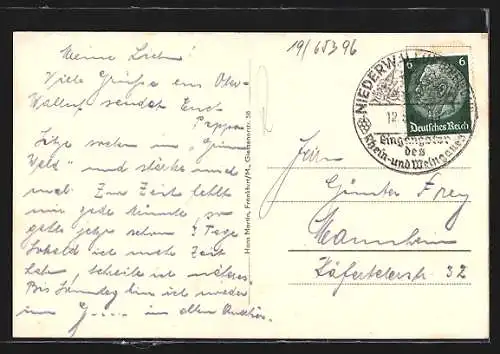 Meine Lieben!
Viele Grüsse aus Ober-
Walluf sendet Euch
Pappa
Sitze soeben im "Grünen
Wald" und stärke mich
mal. Zur Zeit fehlt
mir jede Minute, so
geht jetzt schon 3 Tage
Sobald ich mehr Zeit
habe, schreibe ich näheres.
Bis Samstag bin ich wieder
im G.... in alter
Hans Martin, Frankfurt/M., Gleimenstr. 58
19/65396
NIEDERWALLUF
12.
Eingangstor
des
Rhein- und Weingaues
6 6
Deutsches Reich
Herrn
Günter Frey
Mannheim
Käfertalerstr 32